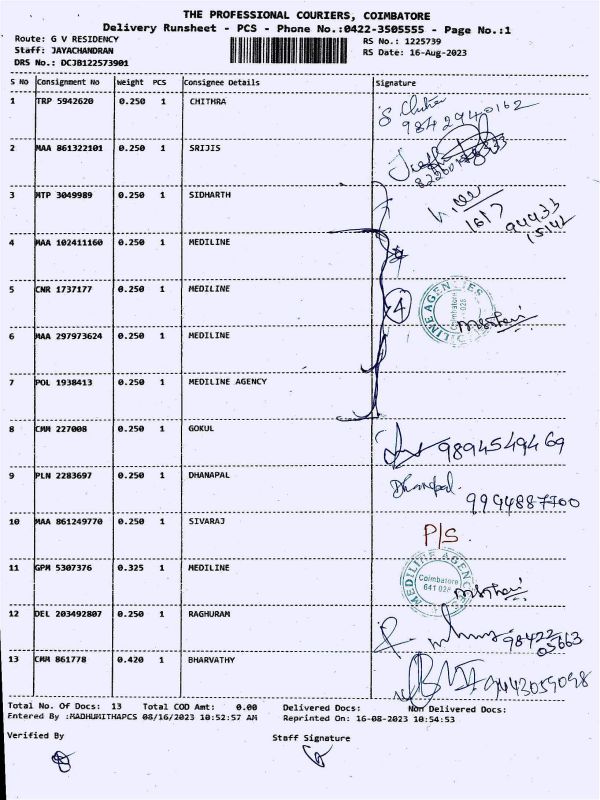 THE PROFESSIONAL COURIERS, COIMBATORE
Delivery Runsheet - PCS - Phone No.:0422-3505555 - Page No.:1
Route: G V RESIDENCY
RS No.: 1225739
Staff: JAYACHANDRAN
RS Date: 16-Aug-2023
DRS No.: DCJB122573901
S NO Consignment No Weight PCS Consignee Details Signature
1 TRP 5942620 0.250 1 CHITHRA
9842940162
2 MAA 861322101 0.250 1 SRIJIS
3 MTP 3049989 0.250 1 SIDHARTH
1617 94433
15142
4 MAA 102411160 0.250 1 MEDILINE
5 CNR 1737177 0.250 1 MEDILINE
4
MEDILINE AGENCIES
Coimbatore
641 028
6 MAA 297973624 0.250 1 MEDILINE
7 POL 1938413 0.250 1 MEDILINE AGENCY
8 CMM 227008 0.250 1 GOKUL
9894549469
9 PLN 2283697 0.250 1 DHANAPAL
Dhanapal.
9994887700
10 MAA 861249770 0.250 1 SIVARAJ
P/S
11 GPM 5307376 0.325 1 MEDILINE
MEDILINE AGENCIES
Coimbatore
641 028
12 DEL 203492807 0.250 1 RAGHURAM
98422
05663
13 CMM 861778 0.420 1 BHARVATHY
9443059098
Total No. Of Docs: 13 Total COD Amt: 0.00 Delivered Docs: Non Delivered Docs:
Entered By :MADHUMITHAPCS 08/16/2023 10:52:57 AM Reprinted On: 16-08-2023 10:54:53
Verified By Staff Signature